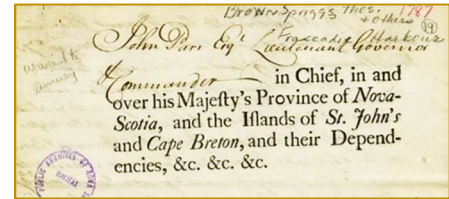 Brownspriggs Thos. 1787
& others (19)
Tracadie Harbour
John Parr Esqr. Lieutenant Governor
Warrant to
Survey
& Commander in Chief, in and
over his Majeſty's Province of Nova-
Scotia, and the Iſlands of St. John's
and Cape Breton, and their Depend-
encies, &c. &c. &c.
PUBLIC ARCHIVES OF NOVA
HALIFAX